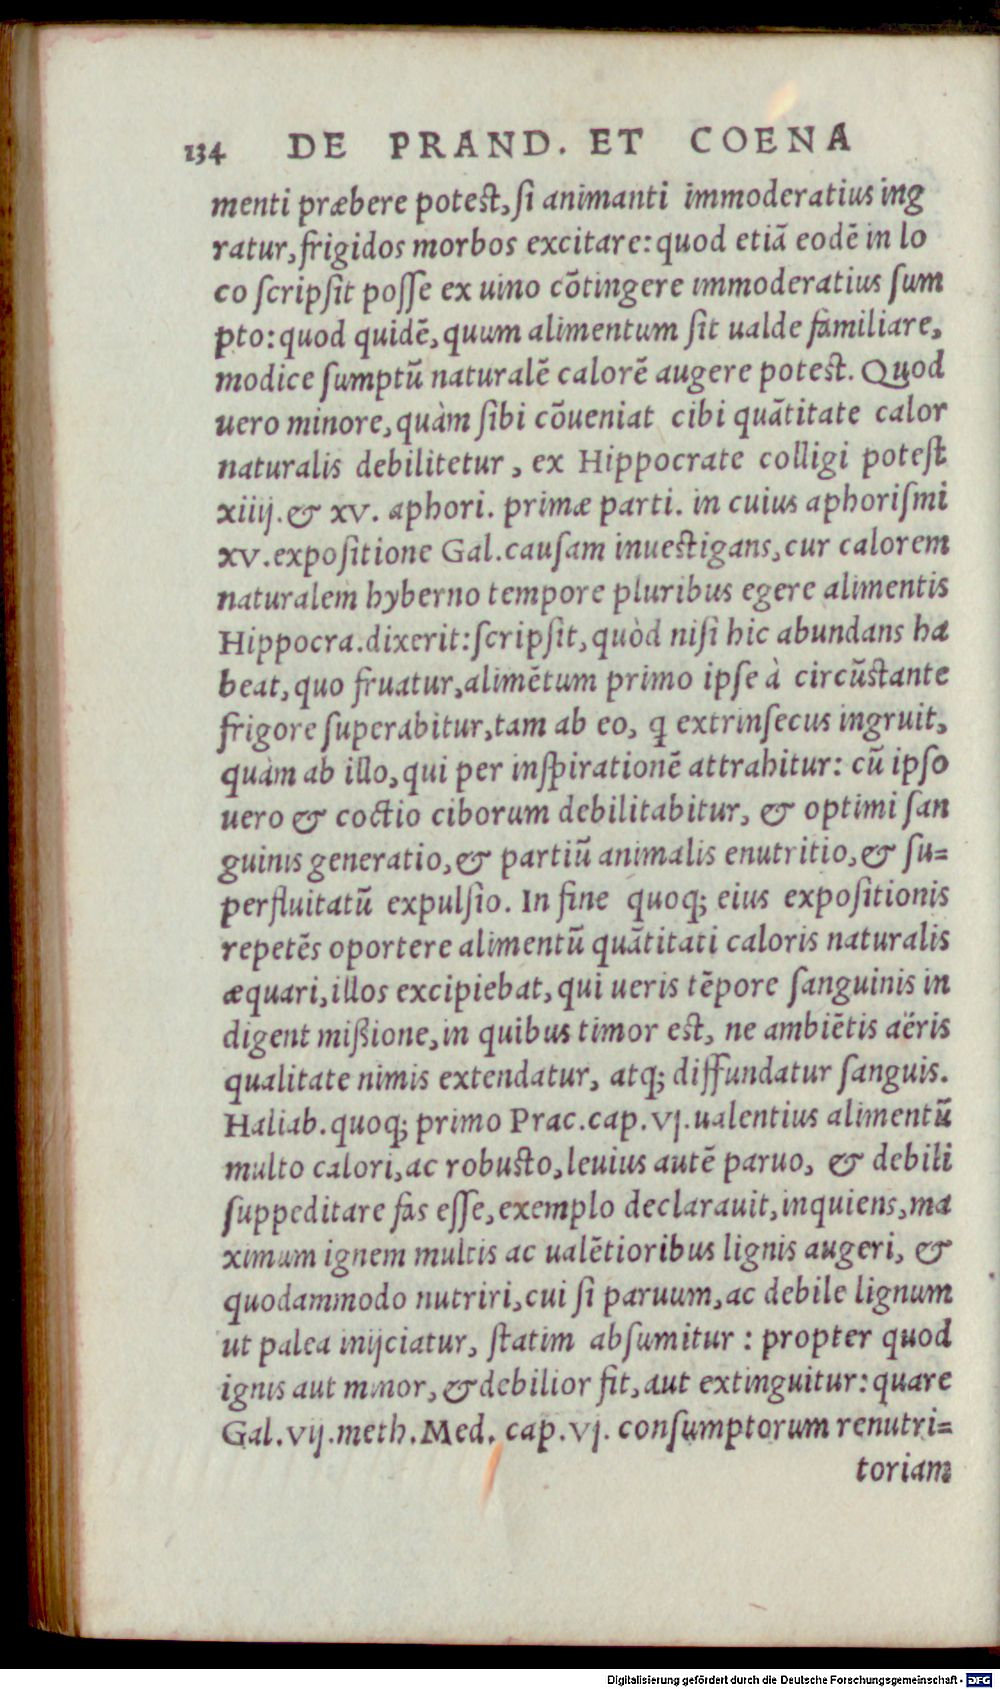 134 DE PRAND. ET COENA
menti præbere potest, ſi animanti immoderatius ing
ratur, frigidos morbos excitare: quod etiã eodẽ in lo
co ſcripſit poſſe ex uino cõtingere immoderatius ſum
pto: quod quidẽ, quum alimentum ſit ualde familiare,
modice ſumptũ naturalẽ calorẽ augere potest. Quod
uero minore, quàm ſibi cõueniat cibi quãtitate calor
naturalis debilitetur, ex Hippocrate colligi potest
xiiij. & xv. aphori. primæ parti. in cuius aphoriſmi
xv. expoſitione Gal. cauſam inuestigans, cur calorem
naturalem hyberno tempore pluribus egere alimentis
Hippocra. dixerit: ſcripſit, quòd niſi hic abundans ha
beat, quo fruatur, alimẽtum primo ipſe à circũstante
frigore ſuperabitur, tam ab eo, ꝗ extrinſecus ingruit,
quàm ab illo, qui per inſpirationẽ attrahitur: cũ ipſo
uero & coctio ciborum debilitabitur, & optimi ſan
guinis generatio, & partiũ animalis enutritio, & ſu=
perfluitatũ expulſio. In fine quoq; eius expoſitionis
repetẽs oportere alimentũ quãtitati caloris naturalis
æquari, illos excipiebat, qui ueris tẽpore ſanguinis in
digent mißione, in quibus timor est, ne ambiẽtis aëris
qualitate nimis extendatur, atq; diffundatur ſanguis.
Haliab. quoq; primo Prac. cap. vj. ualentius alimentũ
multo calori, ac robusto, leuius autẽ paruo, & debili
ſuppeditare fas eſſe, exemplo declarauit, inquiens, ma
ximum ignem multis ac ualẽtioribus lignis augeri, &
quodammodo nutriri, cui ſi paruum, ac debile lignum
ut palea inijciatur, statim abſumitur : propter quod
ignis aut minor, & debilior fit, aut extinguitur: quare
Gal. vij. meth. Med. cap. vj. conſumptorum renutri=
toriam
Digitalisierung gefördert durch die Deutsche Forschungsgemeinschaft - DFG